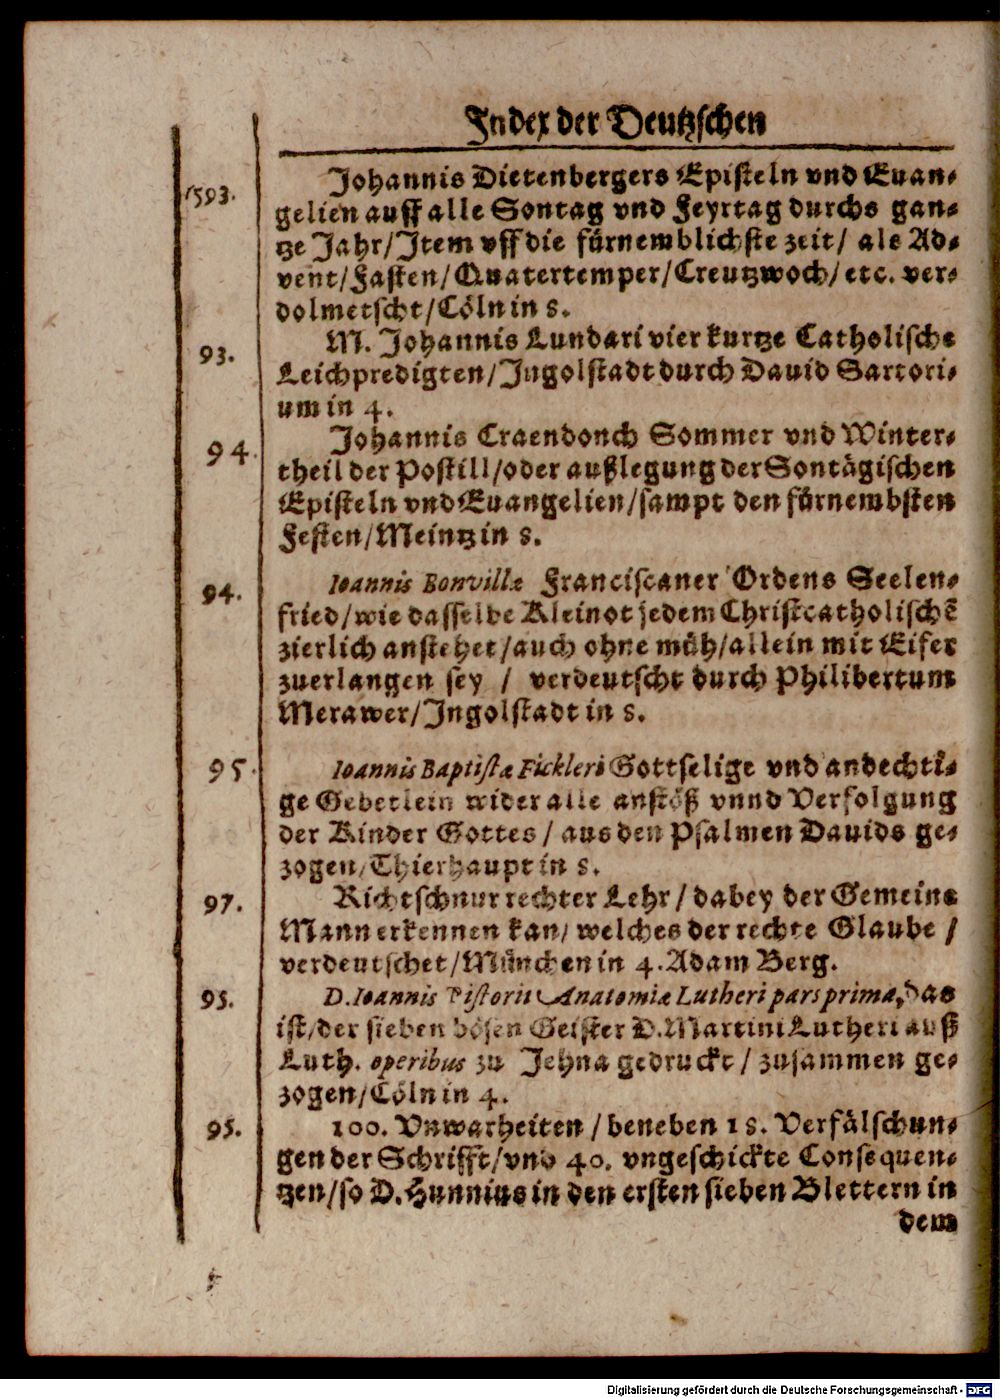 Index der Deutzschen
1593. Johannis Dietenbergers Episteln vnd Euan-
gelien auff alle Sontag vnd Feyrtag durchs gan-
tze Jahr/Item vff die fürnemblichste zeit/ als Ad-
vent/Fasten/Quatertemper/Creutzwoch/etc. ver-
dolmetscht/Cöln in 8.
93. M. Johannis Lundari vier kurtze Catholische
Leichpredigten/Ingolstadt durch Dauid Sartori-
um in 4.
94. Johannis Craendonch Sommer vnd Winter-
theil der Postill/oder außlegung der Sontägischen
Episteln vnd Euangelien/sampt den fürnembsten
Festen/Meintz in 8.
94. Ioannis Bonvillæ Franciscaner Ordens Seelen-
fried/wie dasselbe Kleinot jedem Christcatholischē
zierlich anstehet/auch ohne müh/allein mit Eifer
zuerlangen sey / verdeutscht durch Philibertum
Merawer/Ingolstadt in 8.
95. Ioannis Baptistæ Fickleri Gottselige vnd andechti-
ge Gebetlein wider alle anstöß vnnd Verfolgung
der Kinder Gottes / aus den Psalmen Dauids ge-
zogen/Thierhaupt in 8.
97. Richtschnur rechter Lehr / dabey der Gemeine
Mann erkennen kan/ welches der rechte Glaube /
verdeutschet/München in 4. Adam Berg.
95. D. Ioannis Pistorii Anatomiæ Lutheri pars prima, das
ist/der sieben bösen Geister D. Martini Lutheri auß
Luth. operibus zu Jehna gedruckt / zusammen ge-
zogen/Cöln in 4.
95. 100. Vnwarheiten / beneben 18. Verfälschun-
gen der Schrifft/vnd 40. vngeschickte Consequen-
tzen/so D. Hunnius in den ersten sieben Blettern in
dem
Digitalisierung gefördert durch die Deutsche Forschungsgemeinschaft - DFG